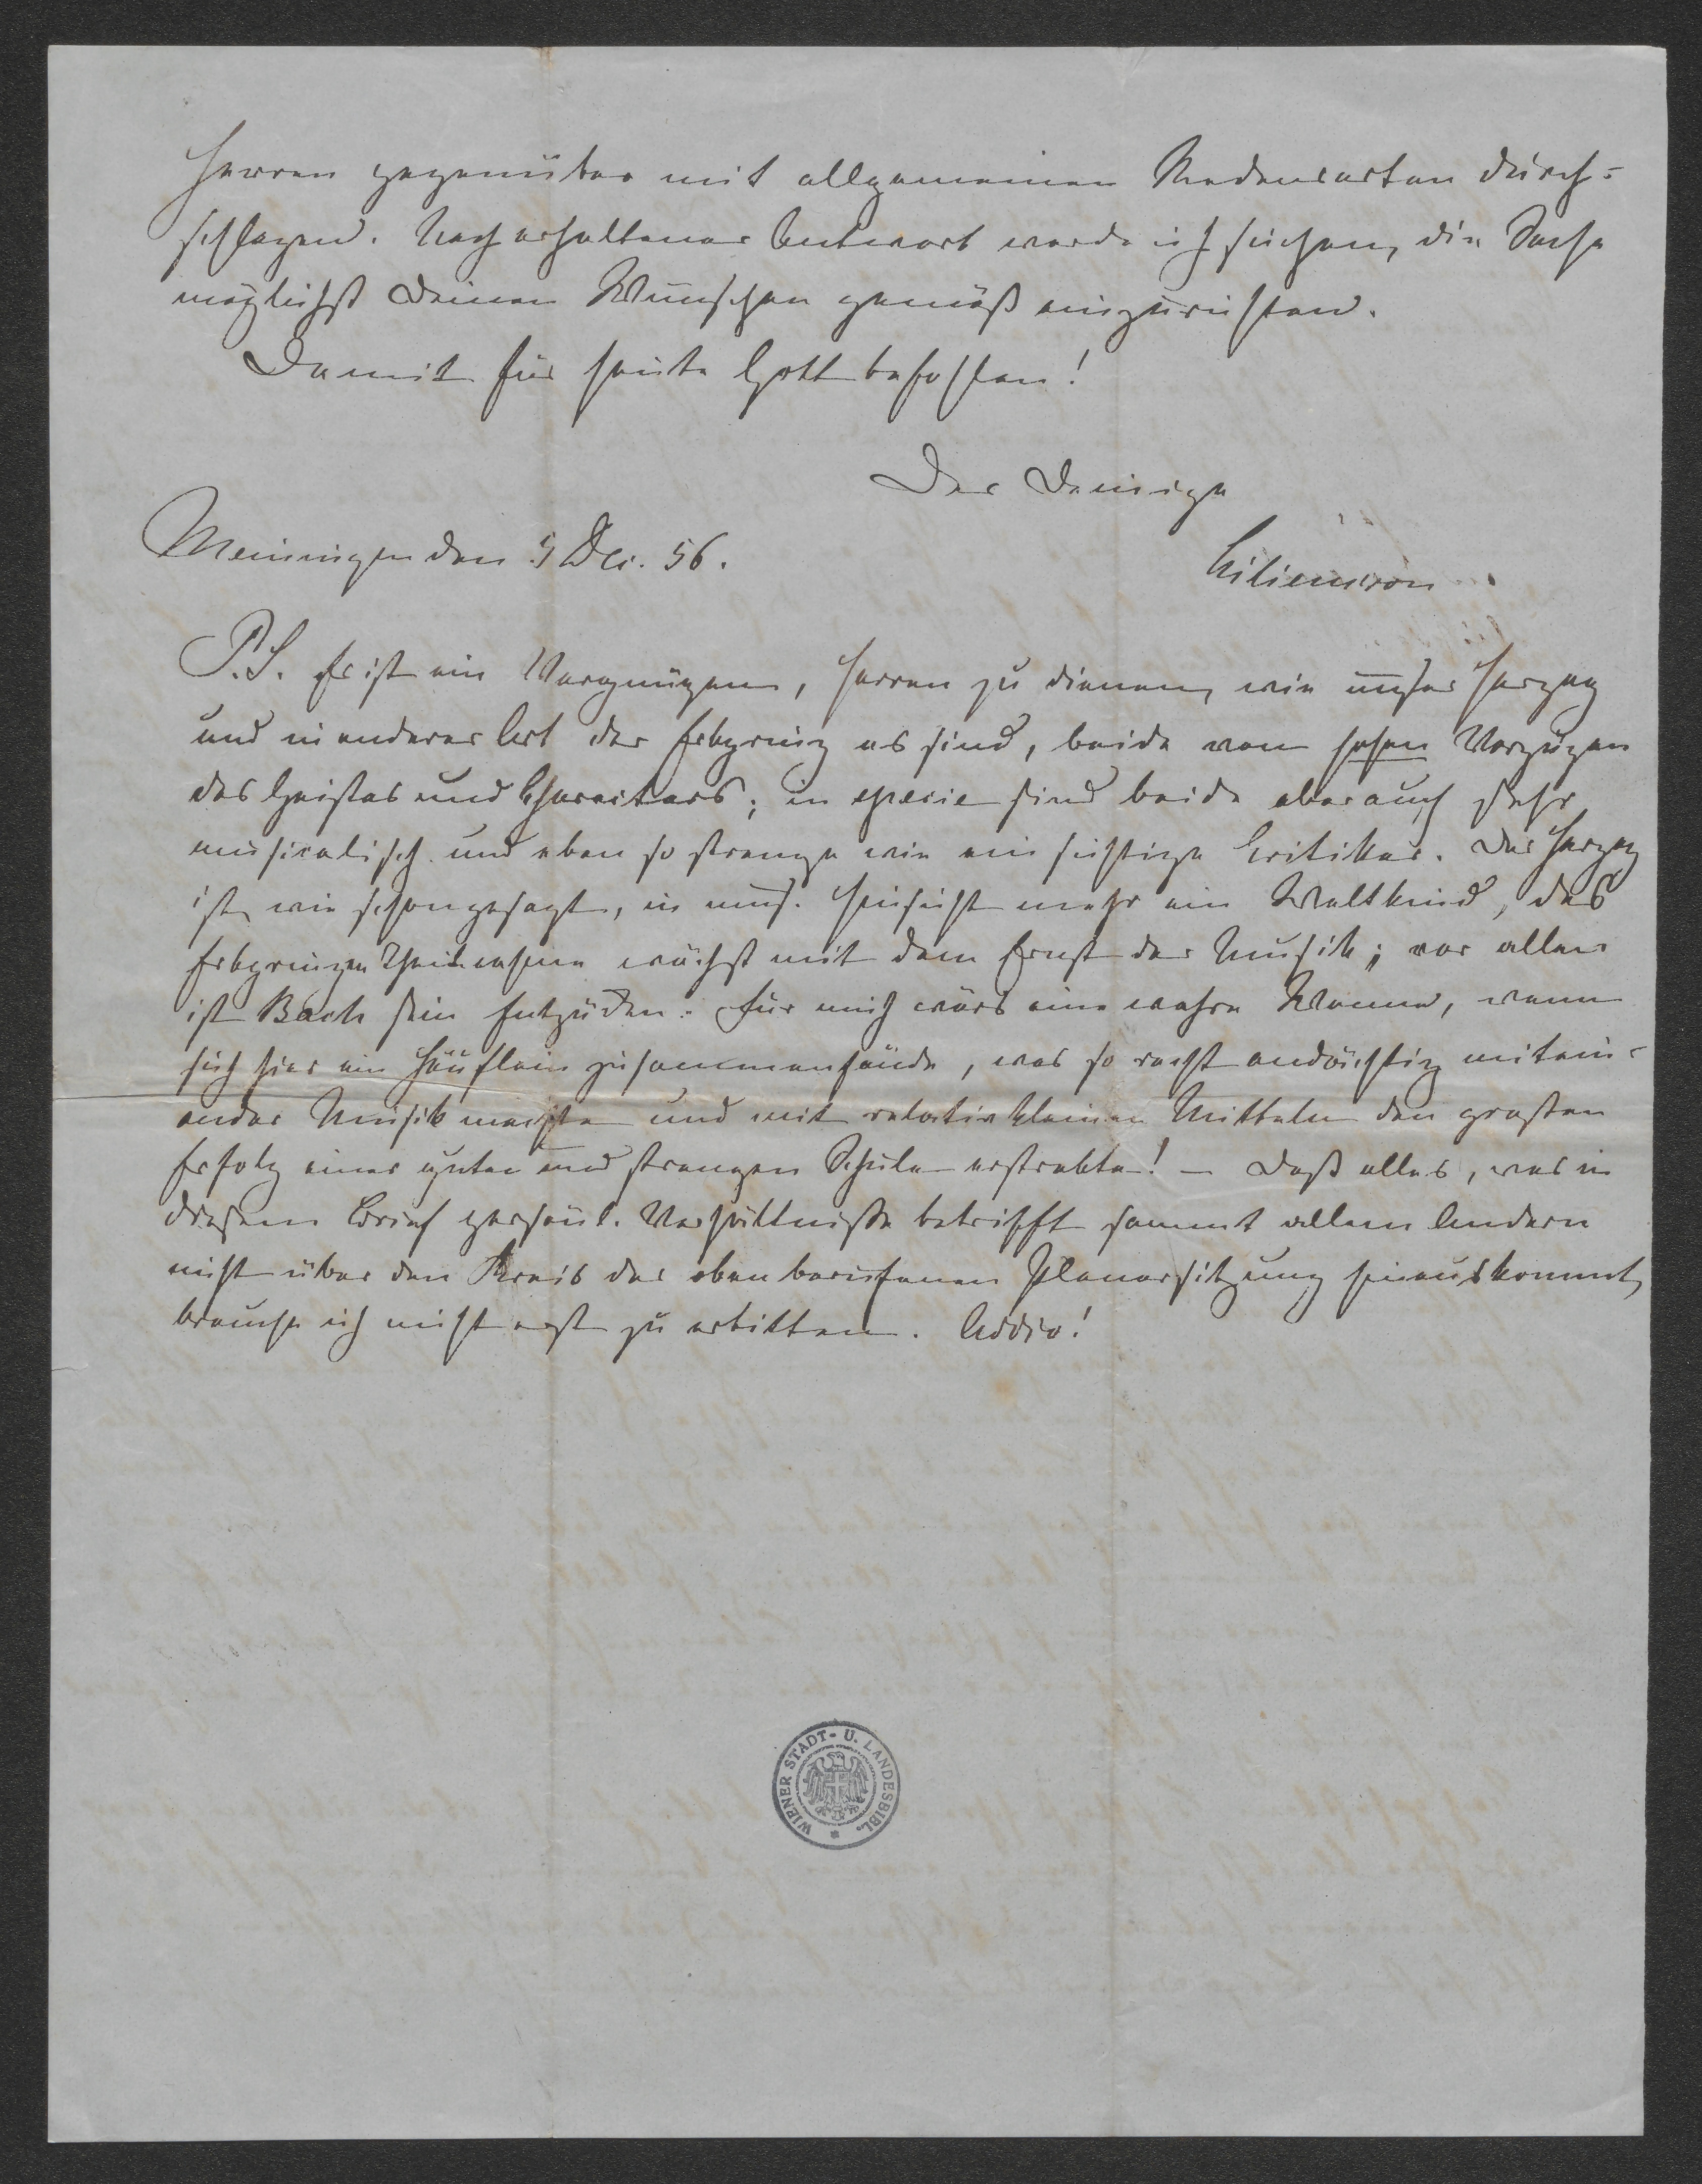 Herren gegenüber mit allgemeinen Redensarten durch-
schlagend. Nach erhaltener Antwort werde ich suchen, die Sache
möglichst Deinen Wünschen gemäß einzurichten.
Damit für heute Gott befohlen!
Der Deinige
Meiningen den 5 Dec. 56.
Liliencron
P.S. Es ist ein Vergnügen, Herren zu dienen, wie unser Herzog
und in anderer Art der Erbprinz es sind, beide von hohen Vorzügen
des Geistes und Characters; in specie sind beide aber auch sehr
musicalisch und eben so strenge wie einsichtige Critiker. Der Herzog
ist, wie schon gesagt, in mus. Hinsicht mehr ein Weltkind, des
Erbprinzen Theilnahme wächst mit dem Ernst der Musik; vor allen
ist Bach sein Entzücken. Für mich wärs eine wahre Wonne, wenn
sich hier ein Häuflein zusammenfände, was so recht andächtig mitein-
ander Musik machte und mit relativ kleinen Mitteln den großen
Erfolg einer guten und strengen Schule erstrebte! – Daß alles, was in
diesem Brief persönl. Verhältniße betrifft sammt allem Andern
nicht über den Kreis der oben berufenen Plenarsitzung hinauskommt,
brauche ich nicht erst zu erbitten. Addio!
WIENER STADT- U. LANDESBIBL.